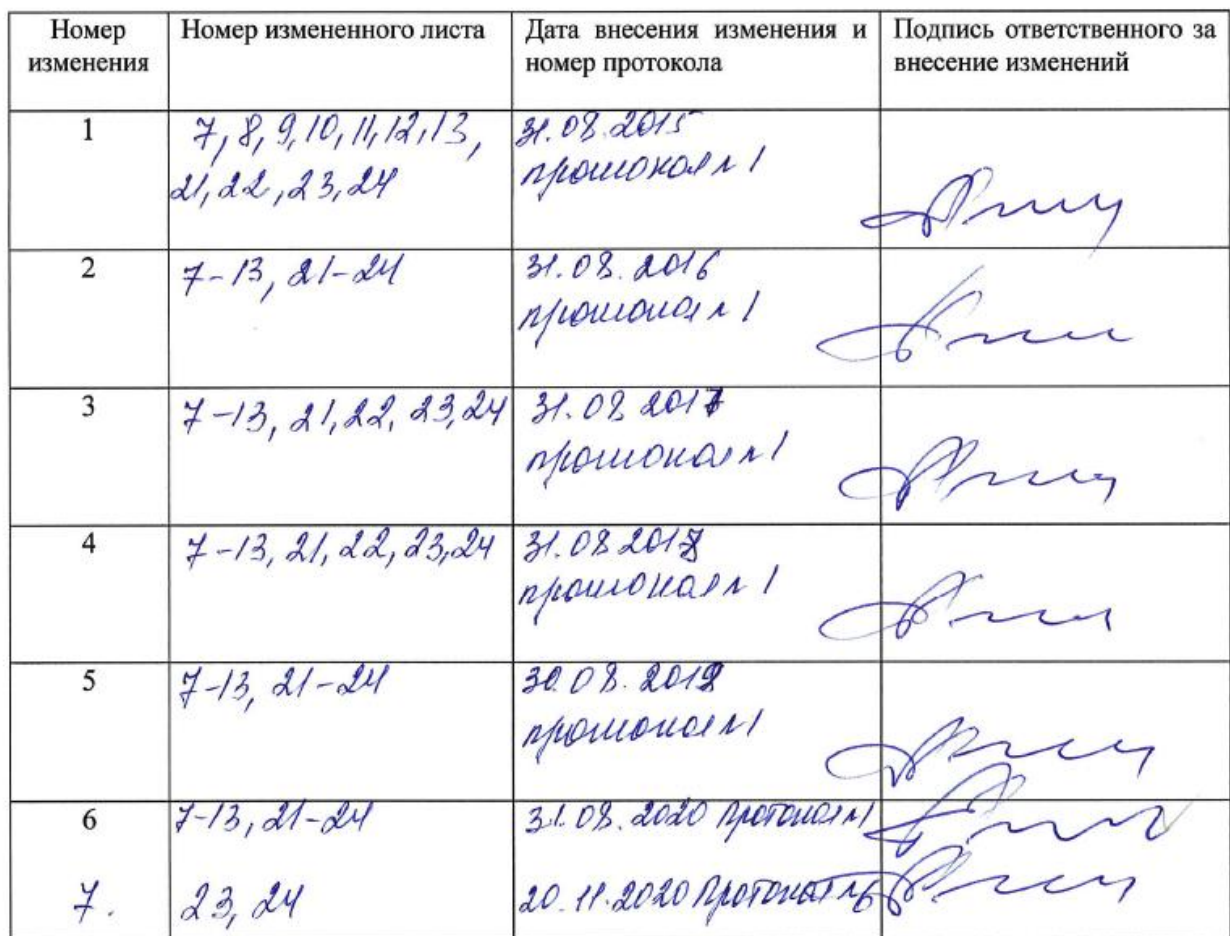 Номер изменения | Номер измененного листа | Дата внесения изменения и номер протокола | Подпись ответственного за внесение изменений
1 | 7, 8, 9, 10, 11, 12, 13, | 31.08.2015
21, 22, 23, 24 | протокол №1
2 | 7-13, 21-24 | 31.08.2016
протокол №1
3 | 7-13, 21, 22, 23, 24 | 31.08 2017
протокол №1
4 | 7-13, 21, 22, 23, 24 | 31.08 2018
протокол №1
5 | 7-13, 21-24 | 30.08.2019
протокол №1
6 | 7-13, 21-24 | 31.08.2020 Протокол №1
7. | 23, 24 | 20.11.2020 Протокол №6